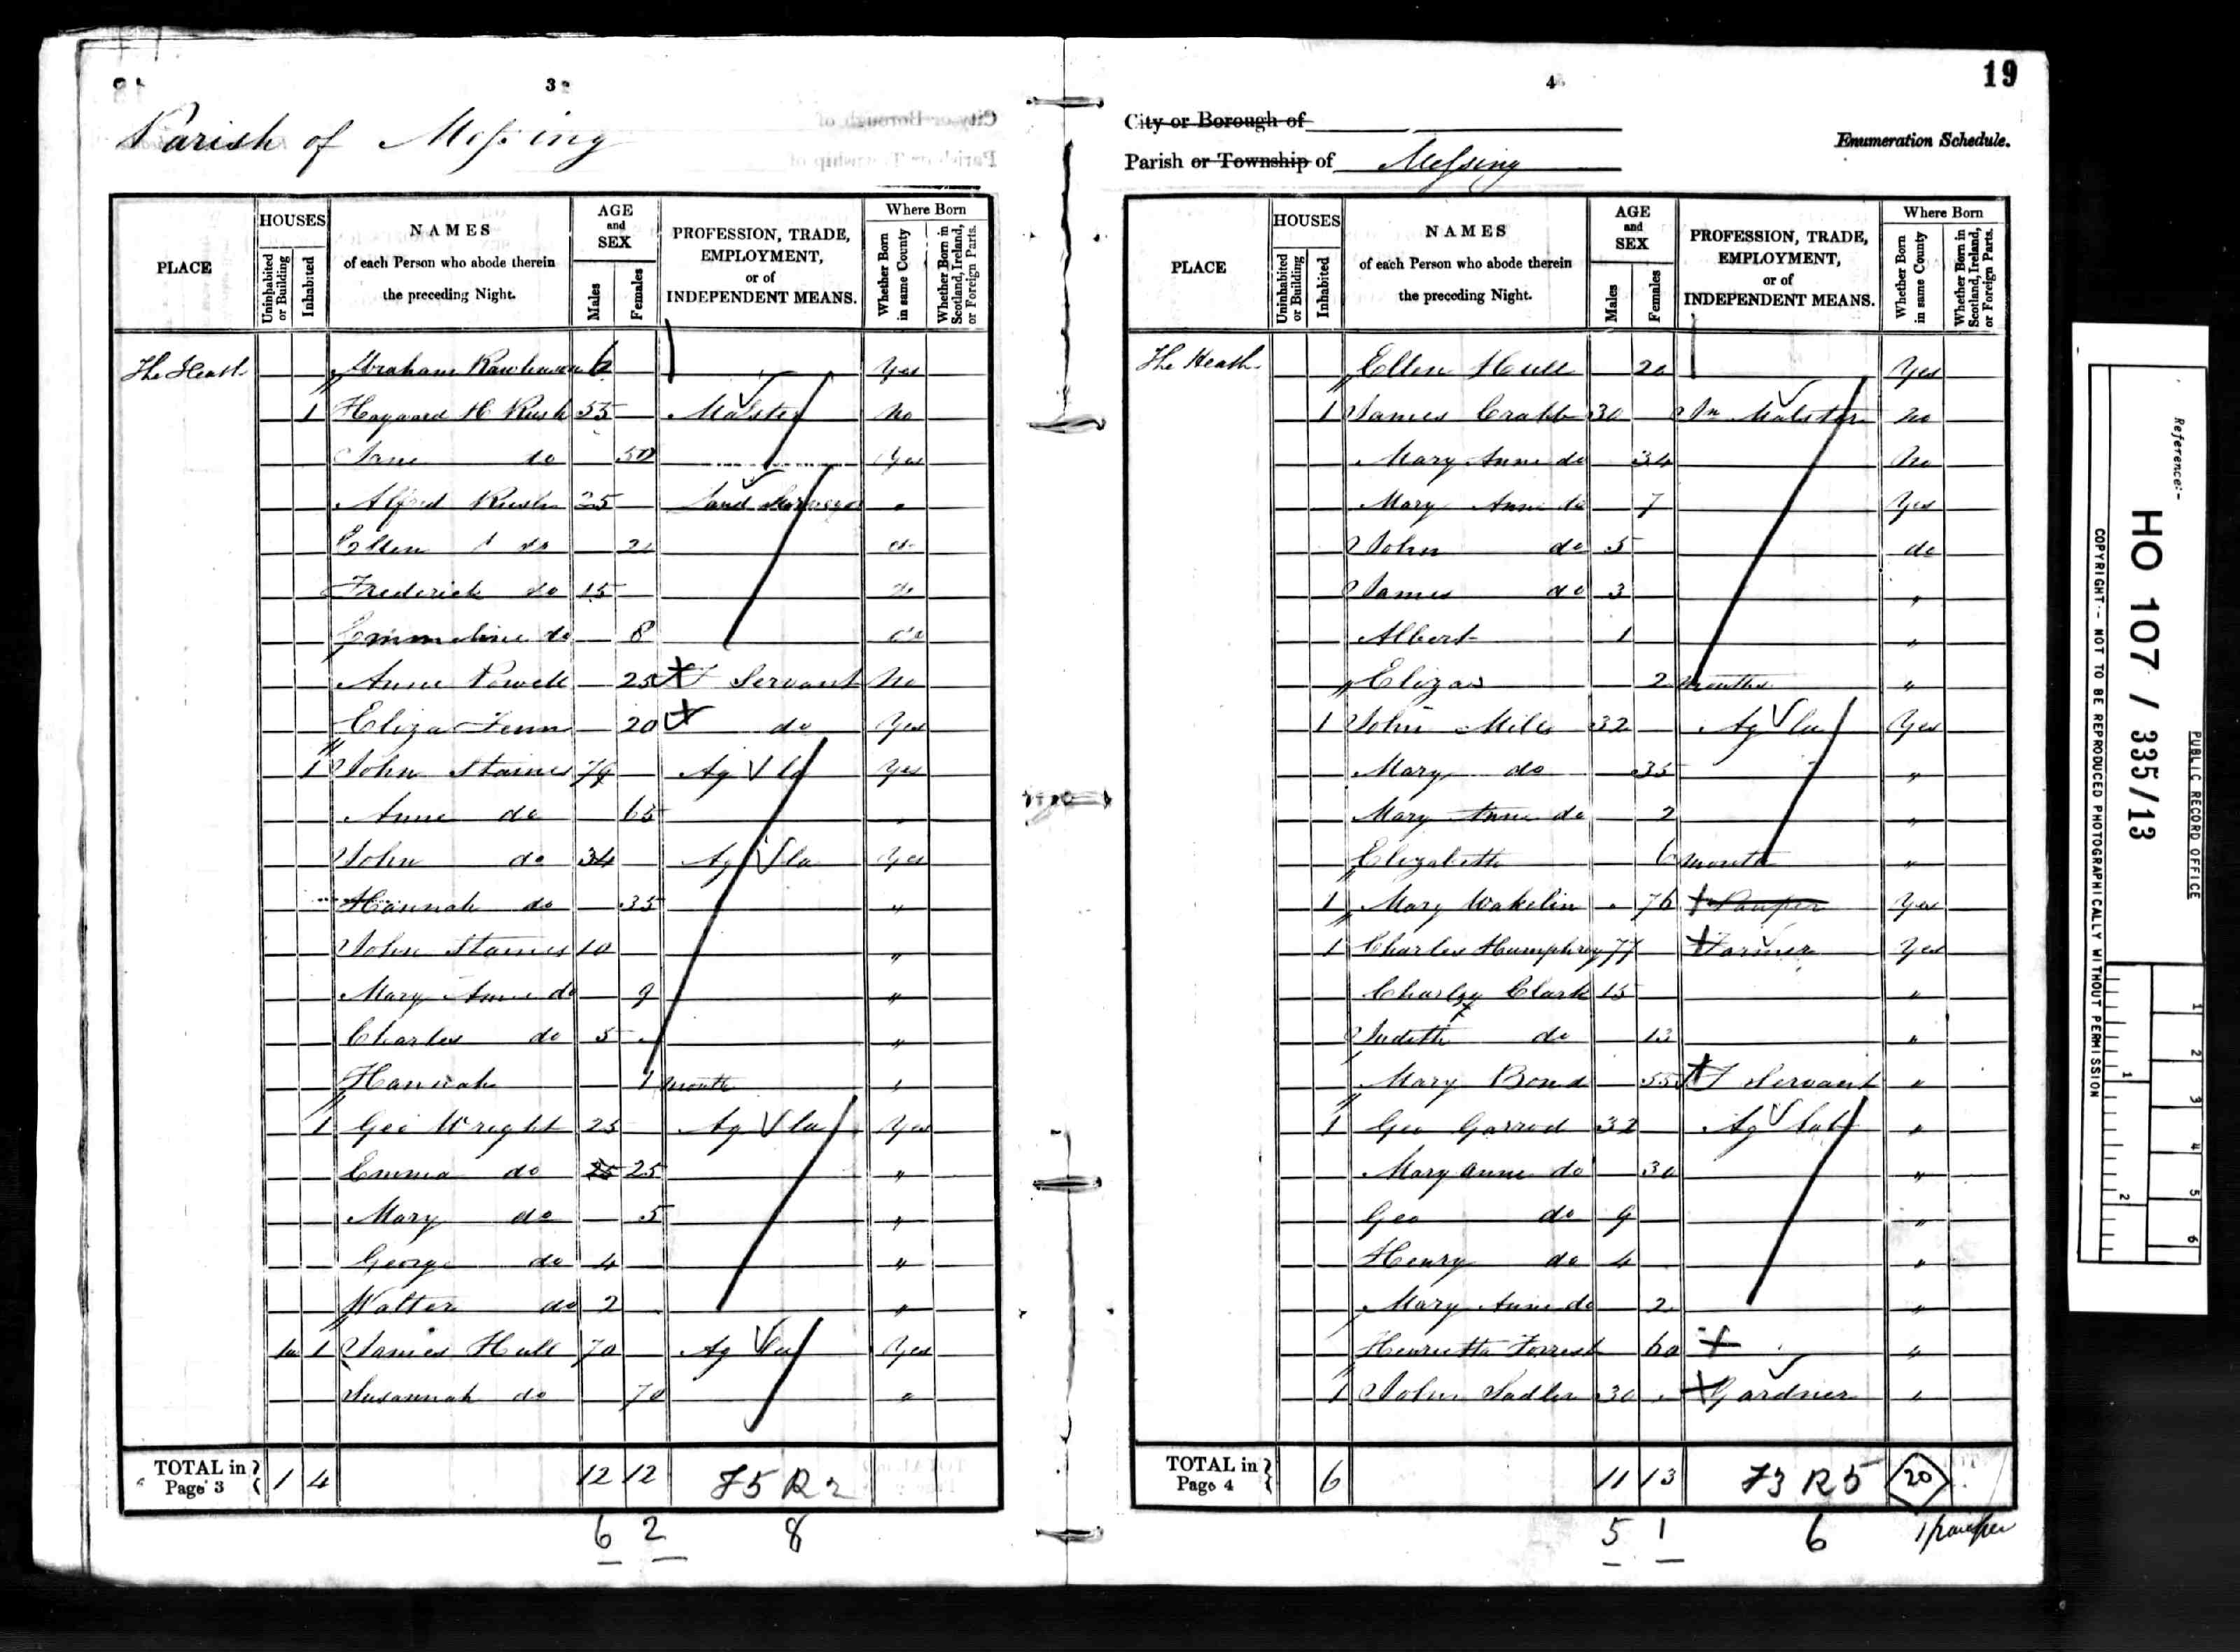 3
Parish of Messing
PLACE
HOUSES
Uninhabited or Building
Inhabited
NAMES
of each Person who abode therein
the preceding Night.
AGE
and
SEX
Males
Females
PROFESSION, TRADE,
EMPLOYMENT,
or of
INDEPENDENT MEANS.
Where Born
Whether Born in same County
Whether Born in Scotland, Ireland, or Foreign Parts.
The Heath Abraham 6 Yes
1 Haywood H Rush 55 Malster No
Jane do 50 Yes
Alfred Rush 25 Land Surveyor "
Ellen do 20 do
Frederick do 15 do
Emmeline do 8 do
Anne Powell 25 F Servant No
Eliza Fenn 20 do Yes
1 John Staines Ag la Yes
Anne do 65
John do 34 Ag la Yes
Hannah do 35 "
John Staines 10 "
Mary Anne do 9 "
Charles do 5 "
Hannah 1 month "
1 Geo Wright 25 Ag la Yes
Emma do 25 25 "
Mary do 5 "
George do 4 "
Walter do 2 "
1u 1 James Hull 70 Ag la Yes
Susannah do 70 "
TOTAL in Page 3 1 4 12 12 F5 R2
6 2 8
4
19
City or Borough of
Enumeration Schedule.
Parish or Township of Messing
PLACE
HOUSES
Uninhabited or Building
Inhabited
NAMES
of each Person who abode therein
the preceding Night.
AGE
and
SEX
Males
Females
PROFESSION, TRADE,
EMPLOYMENT,
or of
INDEPENDENT MEANS.
Where Born
Whether Born in same County
Whether Born in Scotland, Ireland, or Foreign Parts.
The Heath Ellen Hull 20 Yes
1 James Crabb 30 Jn Malster No
Mary Anne do 34 No
Mary Anne do 7 Yes
John do 5 do
James do 3 "
Albert 1 "
Eliza 2 months "
1 John Mills 32 Ag la Yes
Mary do 35 "
Mary Anne do 2 "
Elizabeth 6 month "
1 Mary Wakelin 76 Pauper Yes
1 Charles Humphrey 77 Farmer Yes
Charles Clark 15 "
Judith do 13 "
Mary Bond 55 F Servant "
1 Geo Garrod 32 Ag lab "
Mary Anne do 30 "
Geo do 9 "
Henry do 4 "
Mary Anne do 2 "
Henrietta Forrest 60 "
1 John Sadler 30 Gardner "
TOTAL in Page 4 6 11 13 F3 R5 20
5 1 6 1 pauper
Reference:-
HO 107 / 335/13
PUBLIC RECORD OFFICE
COPYRIGHT - NOT TO BE REPRODUCED PHOTOGRAPHICALLY WITHOUT PERMISSION
1 2 3 4 5 6
1 2